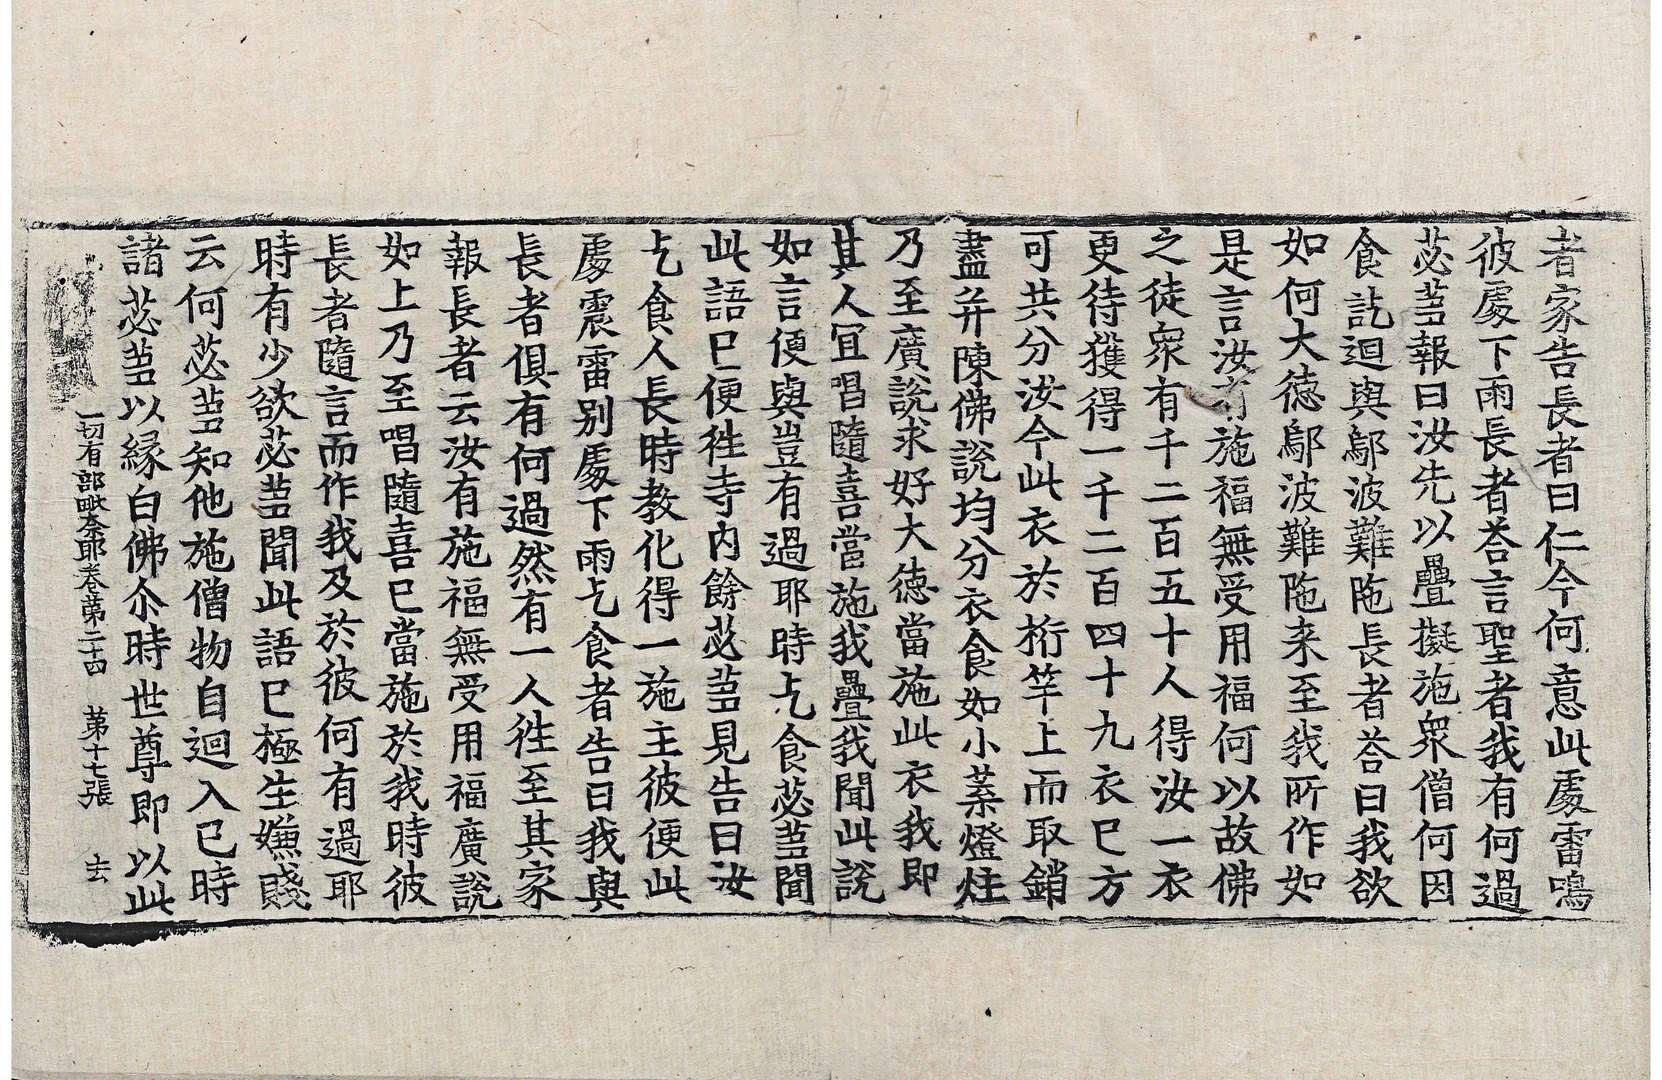 者家告長者曰仁今何意此處雷鳴
彼處下雨長者荅言聖者我有何過
苾蒭報曰汝先以疊擬施衆僧何因
食訖迴與鄔波難陁長者荅曰我欲
如何大德鄔波難陁来至我所作如
是言汝有施福無受用福何以故佛
之徒衆有千二百五十人得汝一衣
更待獲得一千二百四十九衣已方
可共分汝今此衣於桁竿上而取銷
盡并陳佛說均分衣食如小䓭燈炷
乃至廣說求好大德當施此衣我即
其人冝唱隨喜當施我疊我聞此說
如言便與豈有過耶時乞食苾蒭聞
此語已便徃寺內餘苾蒭見告曰汝
乞食人長時教化得一施主彼便此
處震雷别處下雨乞食者告曰我與
長者俱有何過然有一人徃至其家
報長者云汝有施福無受用福廣說
如上乃至唱隨喜已當施於我時彼
長者隨言而作我及於彼何有過耶
時有少欲苾蒭聞此語已極生嫌賤
云何苾蒭知他施僧物自迴入已時
諸苾蒭以緣白佛尒時世尊即以此
一切有部毗奈耶卷第二十四 第十七張 去